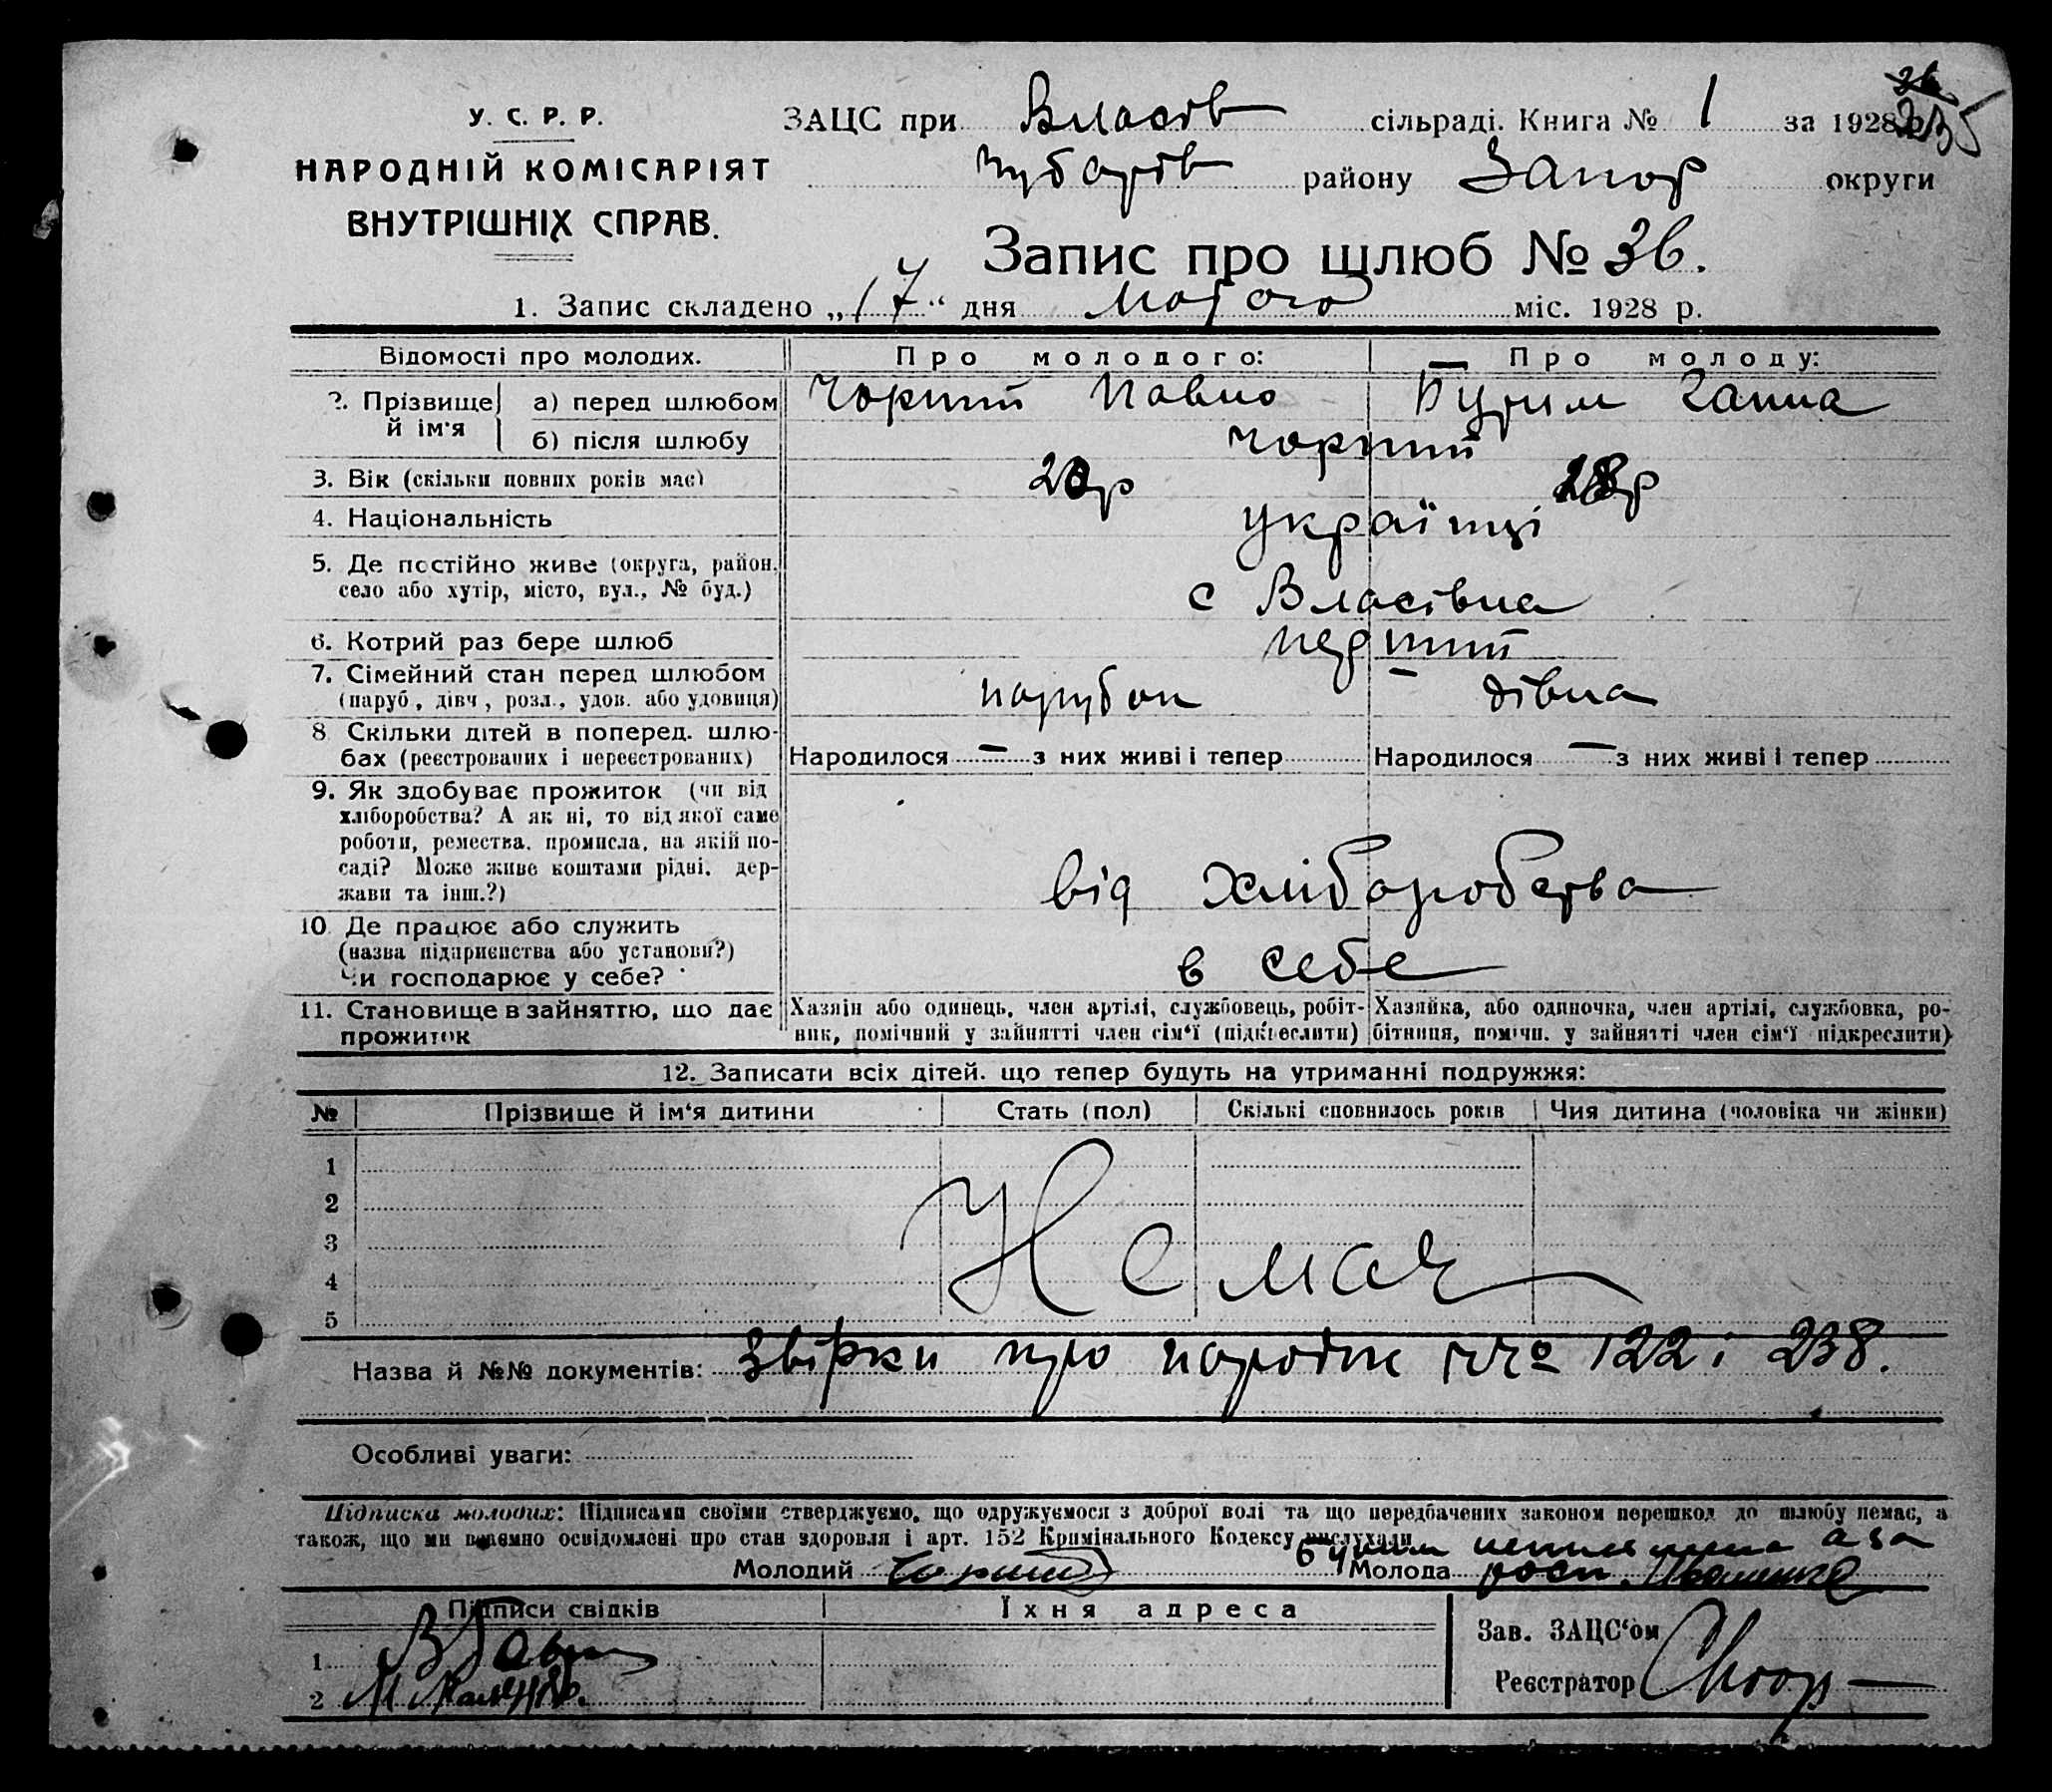 У. С. Р. Р.
НАРОДНІЙ КОМІСАРІЯТ
ВНУТРІШНІХ СПРАВ.
ЗАЦС при Власів сільраді. Книга № 1 за 1928 р. 235
Чубарів району Запор округи
Запис про шлюб № 36.
1. Запис складено „17“ дня лютого міс. 1928 р.
Відомості про молодих. Про молодого: Про молоду:
2. Прізвище й ім'я а) перед шлюбом Чорний Павло Бутим Ганна
б) після шлюбу Чорний
3. Вік (скільки повних років має) 20р 18р
4. Національність українці
5. Де постійно живе (округа, район, село або хутір, місто, вул., № буд.) с Власівка
6. Котрий раз бере шлюб перший
7. Сімейний стан перед шлюбом (паруб, дівч, розл., удов. або удовиця) парубок дівка
8 Скільки дітей в поперед. шлюбах (реєстрованих і нереєстрованих) Народилося — з них живі і тепер Народилося — з них живі і тепер
9. Як здобуває прожиток (чи від
хліборобства? А як ні, то від якої саме
роботи, ремества, промисла, на якій по-
саді? Може живе коштами рідні, дер-
жави та інш.?) від хліборобства
10 Де працює або служить
(назва підприєнства або установи?)
Чи господарює у себе? в себе
11. Становище в зайняттю, що дає прожиток
Хазяін або одинець, член артілі, службовець, робіт-
ник, помічний у зайнятті член сім'ї (підкреслити)
Хазяйка, або одиночка, член артілі, службовка, ро-
бітниця, помічн. у зайнятті член сім'ї підкреслити)
12. Записати всіх дітей, що тепер будуть на утриманні подружжя:
№ Прізвище й ім'я дитини Стать (пол) Скількі сповнилось років Чия дитина (чоловіка чи жінки)
1
2
3 Немає
4
5
Назва й №№ документів: Звірки про народж №№ 122 і 238.
Особливі уваги:
Підписка молодих: Підписами своїми стверджуємо, що одружуємося з доброї волі та що передбачених законом перешкод до шлюбу немає, а
також, що ми взаємно освідомлені про стан здоровля і арт. 152 Кримінального Кодексу вислухали
Молодий Чорний Молода
Підписи свідків Їхня адреса Зав. ЗАЦС'ом
1
2 Реєстратор